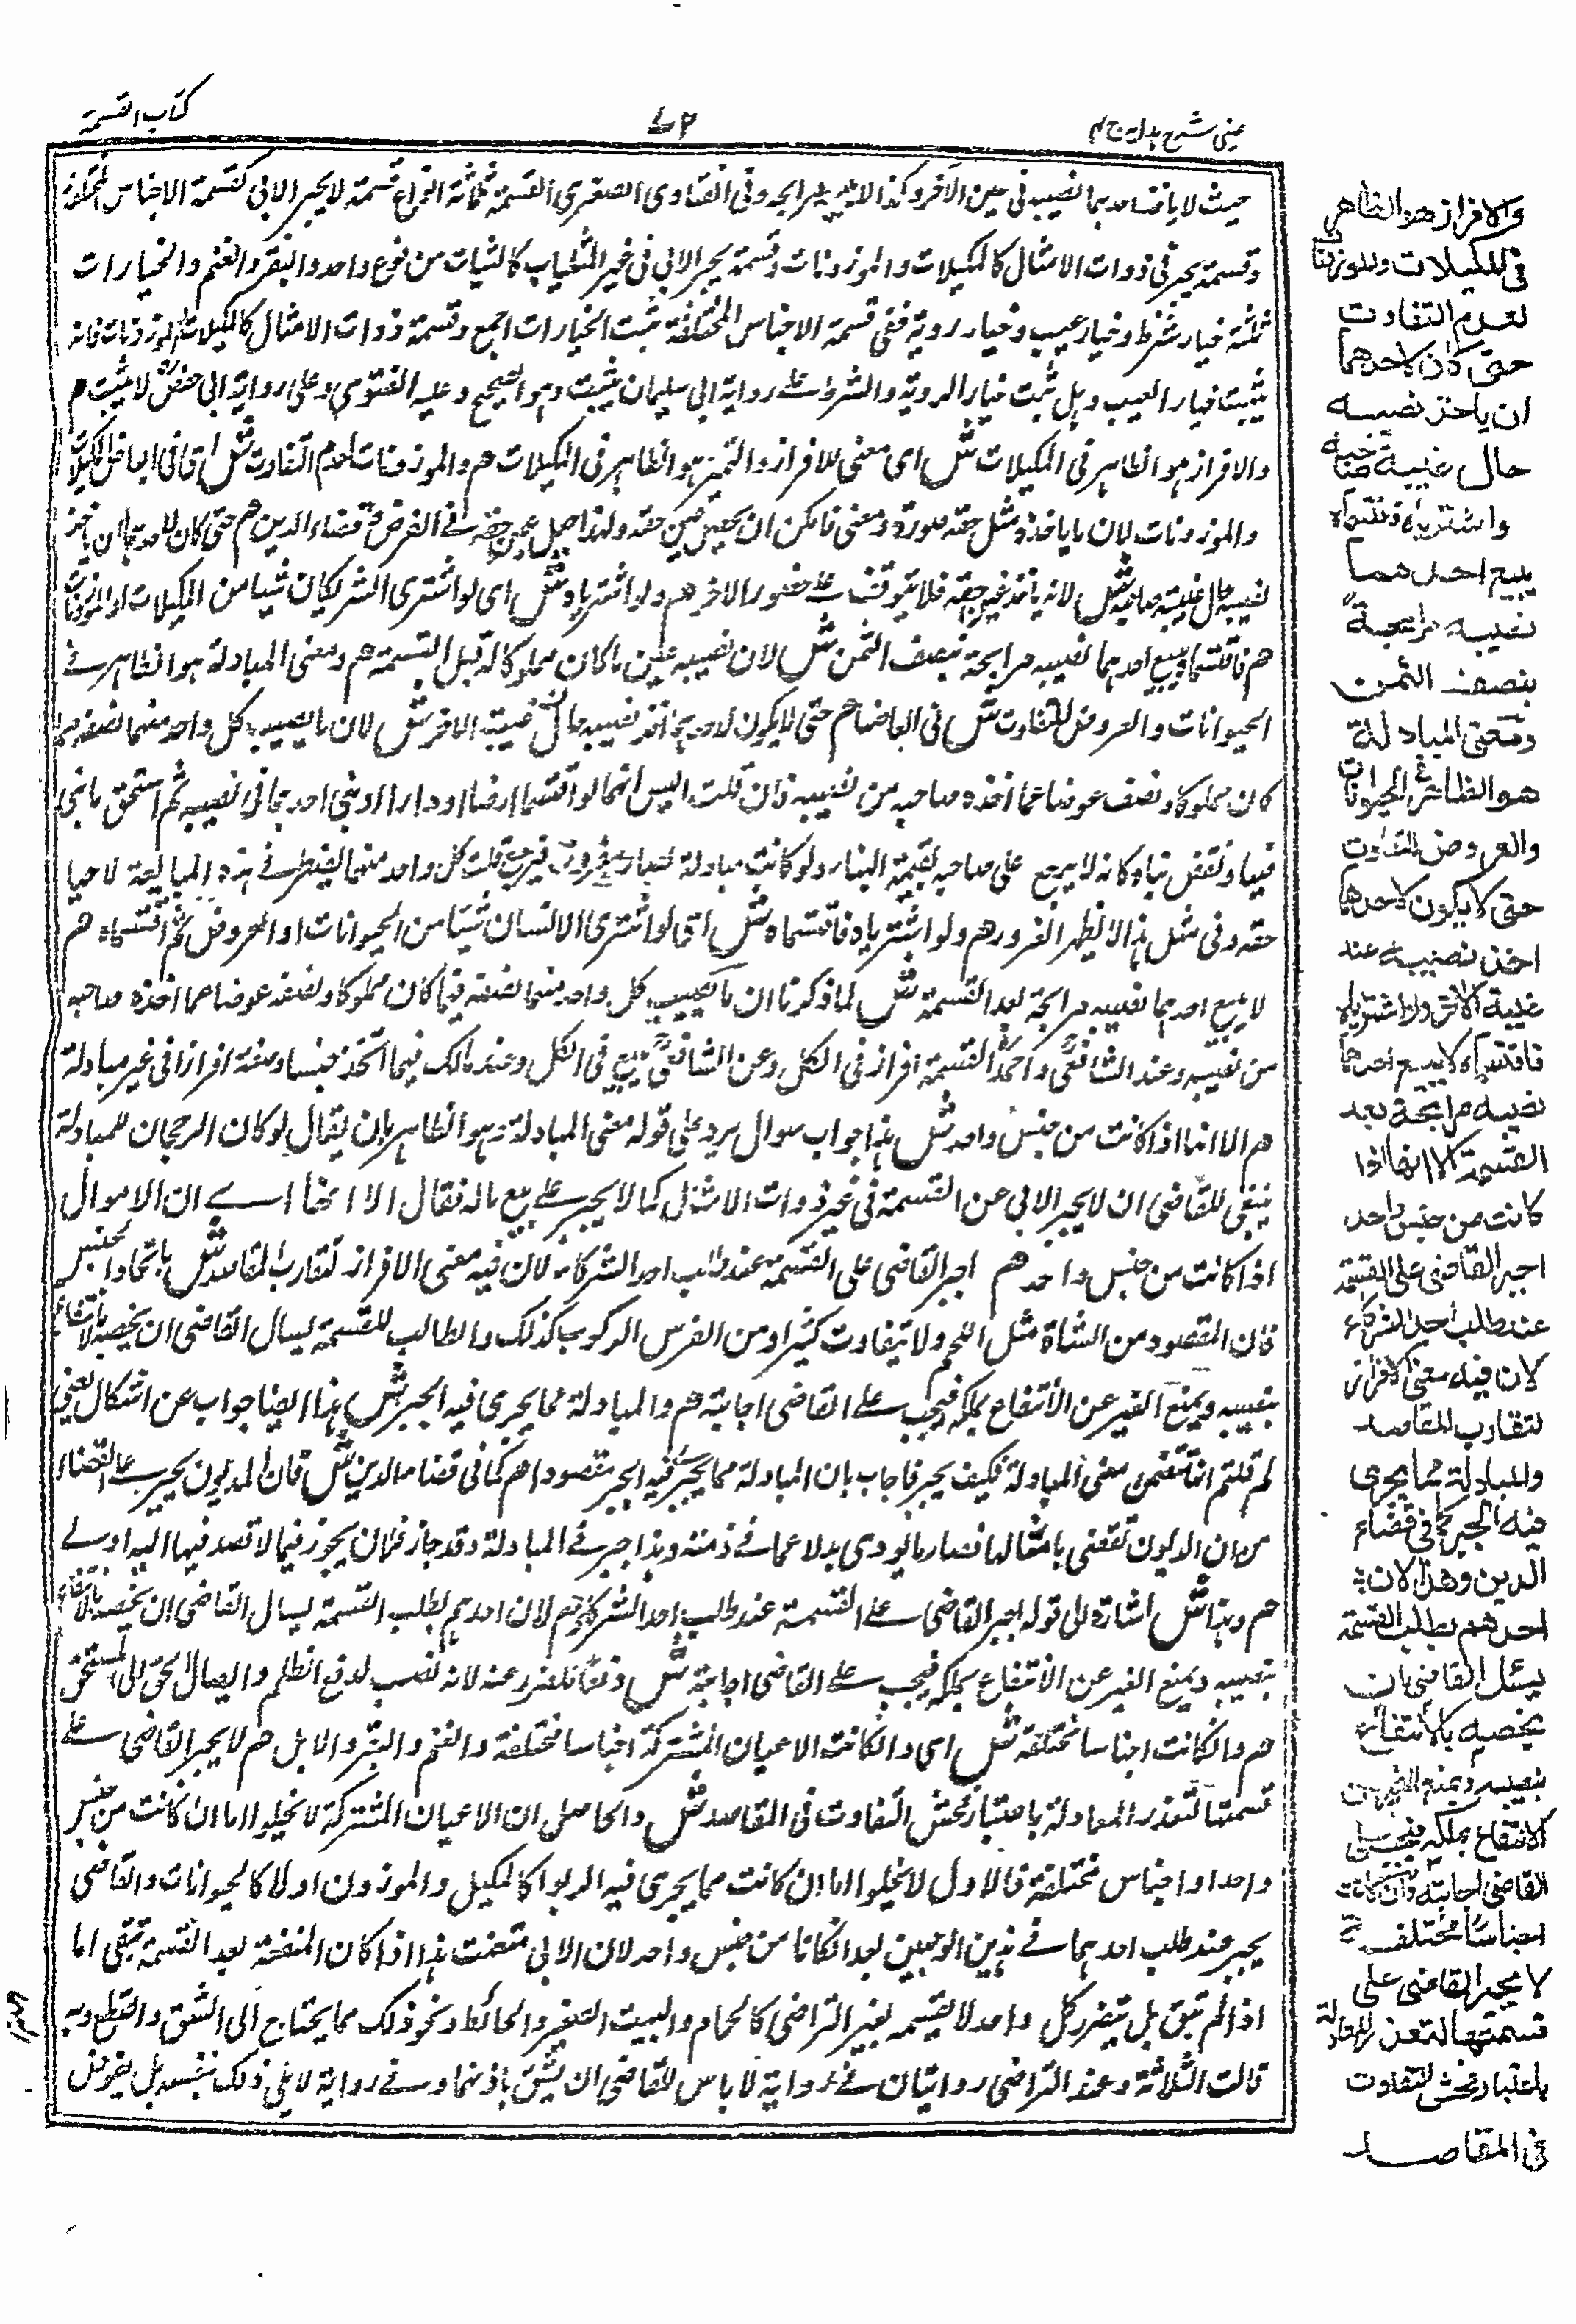 عینی شرح ہدایہ ج ۴
۷۲
کتاب القسمة
حیث لا یاخذ احدہما نصیبہ فی حین الآخر وکذا لا یبیع مرابحہ وفی الفتاوی الصغری القسمة ثلثة انواع قسمة لا یجبر الآبی کقسمة الاجناس المختلفة
وقسمة یجبر فی ذوات الامثال کالمکیلات والموزونات وقسمة یجبر الآبی فی غیر المثلیات کالثیاب من نوع واحد والبقر والغنم والخیارات
ثلثة خیار شرط وخیار عیب وخیار رویة ففی قسمة الاجناس المختلفة تثبت الخیارات اجمع وقسمة ذوات الامثال کالمکیلات والموزونات فانه
یثبت خیار العیب وہل یثبت خیار الرویة والشرط علے روایة ابی سلیمان یثبت وہو الصحیح وعلیہ الفتوی وعلی روایة ابی حفص لا یثبت م
والافراز ہو الظاہر فی المکیلات ش ای معنی الافراز والتمییز ہو الظاہر فی المکیلات م والموزونات لعدم التفاوت ش ای فی ابعاض المکیلات
والموزونات لان ما یاخذه مثل حقہ صورة ومعنی فامکن ان یجعل عین حقہ ولہذا جعل عین حقہ فے القرض وقضاء الدین م حتی کان لاحدہما ان یاخذ
نصیبہ حال غیبة صاحبہ ش لانہ یاخذ عین حقہ فلا یتوقف علے حضور الآخر م ولو اشتریاه ش ای لو اشتری الشریکان شیا من المکیلات او الموزونات
م فاقتسماه یبیع احدہما نصیبہ مرابحة بنصف الثمن ش لان نصیبہ عین ما کان مملوکا لہ قبل القسمة م ومعنی المبادلة ہو الظاہر فے
الحیوانات والعروض للتفاوت ش فی ابعاضہا م حتی لا یکون لاحدہما اخذ نصیبہ حال غیبة الآخر ش لان ما یصیب کل واحد منہما نصفہ مما
کان مملوکا ونصف عوضا عما اخذه صاحبہ من نصیبہ فان قلت الیس انہما لو اقتسما ارضا او دارا او بنی احدہما فی نصیبہ ثم استحق ما بنی
فیہا ونقض بناه کانہ لا یرجع علی صاحبہ بقیمة البناء ولو کانت مبادلة لصار مغرورا فیرجع قلت کل واحد منہما یضطر فے ہذه المبایعة لاحیاء
حقہ وفی مثل ہذا لا یظہر الغرور م ولو اشتریاه فاقتسماه ش ای لو اشتری الانسان شیئا من الحیوانات او العروض ثم اقتسماه م
لا یبیع احدہما نصیبہ مرابحة بعد القسمة ش لما ذکرنا ان ما یصیب کل واحد منہما نصفہ مما کان مملوکا ونصفہ عوضا عما اخذه صاحبہ
من نصیبہ وعند الشافعی واحمد القسمة افراز فی الکل وعن الشافعی بیع فی الکل وعند مالک فیما اتخذ جنسا وصفة افراز وفی غیر مبادلة
م الا انہا اذا کانت من جنس واحد ش ہذا جواب سوال یرد علی قولہ معنی المبادلة ہو الظاہر بان یقال لو کان الرجحان للمبادلة
ینبغی للقاضی ان لا یجبر الآبی عن القسمة فی غیر ذوات الامثال کما لا یجبر علے بیع مالہ فقال الا انہا اے ان الاموال
اذا کانت من جنس واحد م اجبر القاضی علی القسمة عند طلب احد الشرکاء لان فیہ معنی الافراز لتقارب المقاصد ش باتحاد الجنس
فان المقصود من الشاة مثل اللحم ولا یتفاوت کثیرا ومن الفرس الرکوب کذلک والطالب للقسمة یسال القاضی ان یخصہ بالانتفاع
بنصیبہ ویمنع الغیر عن الانتفاع بملکہ فیجب علے القاضی اجابتہ م والمبادلة مما یجری فیہ الجبر ش ہذا ایضا جواب عن اشکال یعنی
لم قلتم انہا تتضمن معنی المبادلة فکیف یجبر فاجاب بان المبادلة مما یجری فیہ الجبر مقصودا م کما فی قضاء الدین ش فان المدیون یجبر علے القضاء
مع ان الدیون تقضی بامثالہا فصار ما یودی بدلا عما فے ذمتہ وہذا جبر فے المبادلة وقد جاز فلان یجوز فیما لا قصد فیہا الیہ اولے
م وہذا ش اشارة الی قولہ اجبر القاضی علے القسمة عند طلب احد الشرکاء م لان احدہم بطلب القسمة یسال القاضی ان یخصہ بالانتفاع
بنصیبہ ویمنع الغیر عن الانتفاع بملکہ فیجب علے القاضی اجابتہ ش دفعا للضرر عنہ لانہ نصب لدفع الظلم وایصال الحق الی المستحق
م وان کانت اجناسا مختلفة ش ای وان کانت الاعیان المشترکة اجناسا مختلفة والغنم والبقر والابل م لا یجبر القاضی علے
قسمتہا لتعذر المعادلة باعتبار فحش التفاوت فی المقاصد ش والحاصل ان الاعیان المشترکة لا یخلو اما ان کانت من جنس
واحد او اجناس مختلفة فالاول لا یخلوا اما ان کانت مما یجری فیہ الربوا کالمکیل والموزون او لا کالحیوانات والقاضی
یجبر عند طلب احدہما فے ہذین الوجہین بعد ان کانا من جنس واحد لان الآبی متعنت ہذا اذا کان المنفعة بعد القسمة تبقی اما
اذا لم تبق بل یتضرر کل واحد لا یقسمہ بغیر التراضی کالحمام والبیت الصغیر والحائط ونحو ذلک مما یحتاج الی الشق والقطع وبہ
قالت الثلاثة وعند التراضی روایتان فے روایة لا باس للقاضی ان یشق باذنہما وفے روایة لا یلی ذلک بنفسہ بل یفوض
والافراز هو الظاهر
فی المکیلات والموزونات
لعدم التفاوت
حتی کان لاحدهما
ان یاخذ نصیبه
حال غیبة صاحبه
واشتریاه فاقتسماه
یبیع احدهما
نصیبه مرابحة
بنصف الثمن
ومعنی المبادلة
هو الظاهر فی الحیوانات
والعروض للتفاوت
حتی لا یکون لاحدهما
اخذ نصیبه عند
غیبة الآخر ولو اشتریاه
فاقتسماه لا یبیع احدهما
نصیبه مرابحة بعد
القسمة الا انها اذا
کانت من جنس واحد
اجبر القاضی علی القسمة
عند طلب احد الشرکاء
لان فیه معنی الافراز
لتقارب المقاصد
والمبادلة مما یجری
فیه الجبر کما فی قضاء
الدین وهذا لان
احدهم بطلب القسمة
یسئل القاضی ان
یخصه بالانتفاع
بنصیبه ویمنع الغیر عن
الانتفاع بملکه فیجب علی
القاضی اجابته وان کانت
اجناسا مختلفة
لا یجبر القاضی علی
قسمتها لتعذر المعادلة
باعتبار فحش التفاوت
فی المقاصد